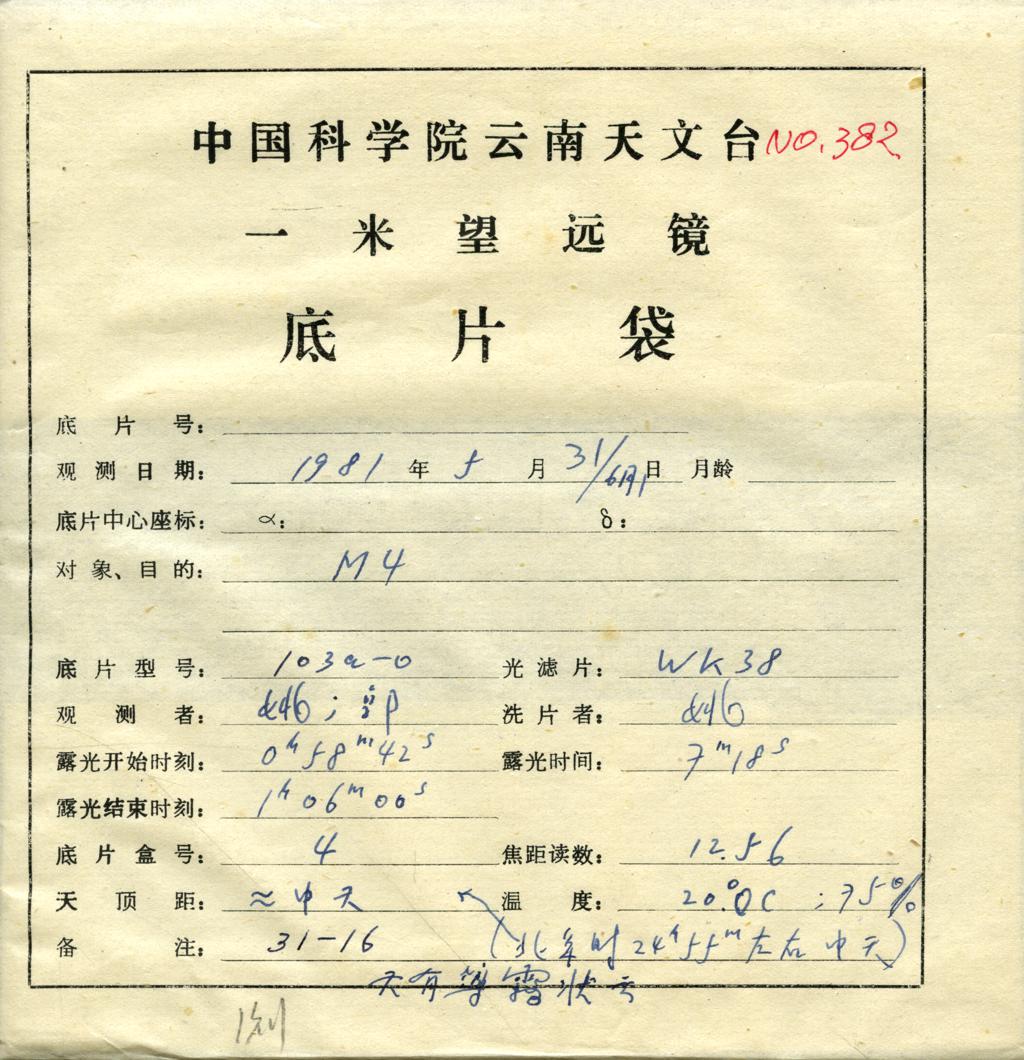 中国科学院云南天文台 NO.382
一米望远镜
底片袋
底片号：
观测日期： 1981 年 5 月 31/6月1 日 月龄
底片中心座标： α： δ：
对象、目的： M4
底片型号： 103a-0 光滤片： WK38
观测者： ； 洗片者：
露光开始时刻： 0h58m42s 露光时间： 7m18s
露光结束时刻： 1h06m00s
底片盒号： 4 焦距读数： 12.56
天顶距： ≈中天 温度： 20.0°C ; 75%
备注： 31-16 (北京时24h55m左右中天)
天有薄雾状云